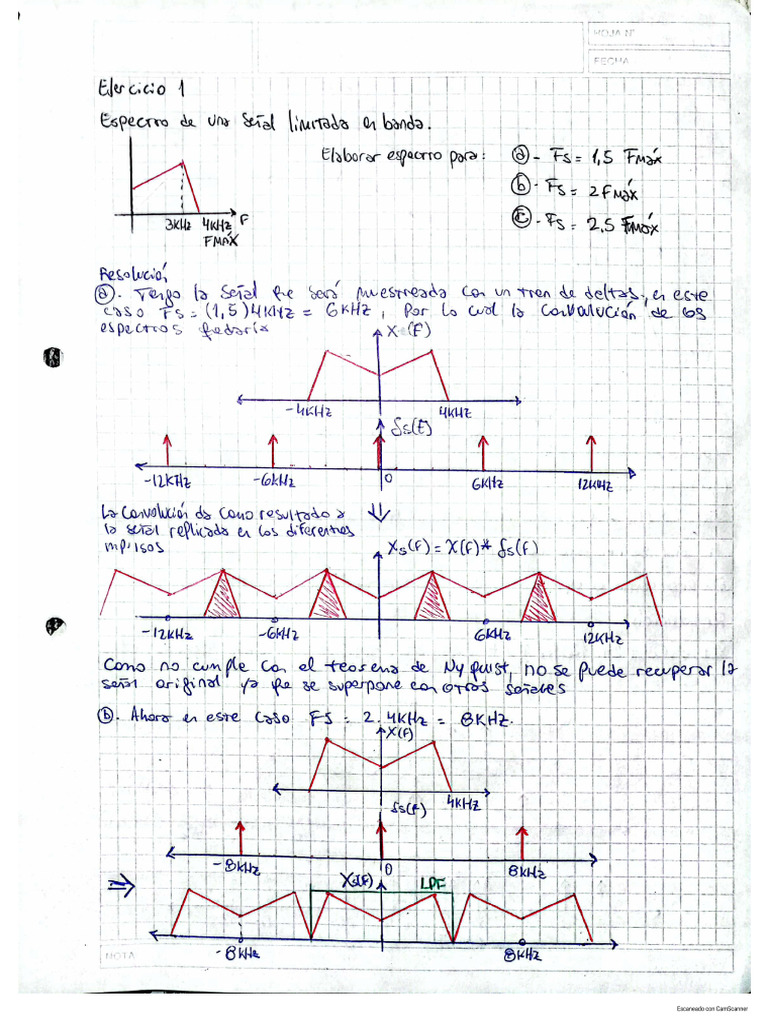 HOJA N°
FECHA
Ejercicio 1
Espectro de una señal limitada en banda.
Elaborar espectro para: ⓐ- Fs = 1,5 Fmáx
ⓑ- Fs = 2 Fmáx
ⓒ- Fs = 2.5 Fmáx
3KHz 4KHz F
FMÁX
Resolución
ⓐ. Tengo la señal que será muestreada con un tren de deltas, en este
caso Fs = (1,5) 4KHz = 6KHz, Por lo cual la convolución de los
espectros quedaría
X(F)
-4KHz 4KHz
δs(F)
-12KHz -6KHz 0 6KHz 12KHz
La convolución da como resultado a
la señal replicada en los diferentes
impulsos
Xs(F) = X(F) * δs(F)
-12KHz -6KHz 6KHz 12KHz
Como no cumple con el teorema de Nyquist, no se puede recuperar la
señal original ya que se superpone con otras señales
ⓑ. Ahora en este caso FS = 2.4KHz = 8KHz.
X(F)
4KHz
δs(F)
-8KHz 0 8KHz
Xs(F) LPF
-8KHz 8KHz
NOTA
Escaneado con CamScanner